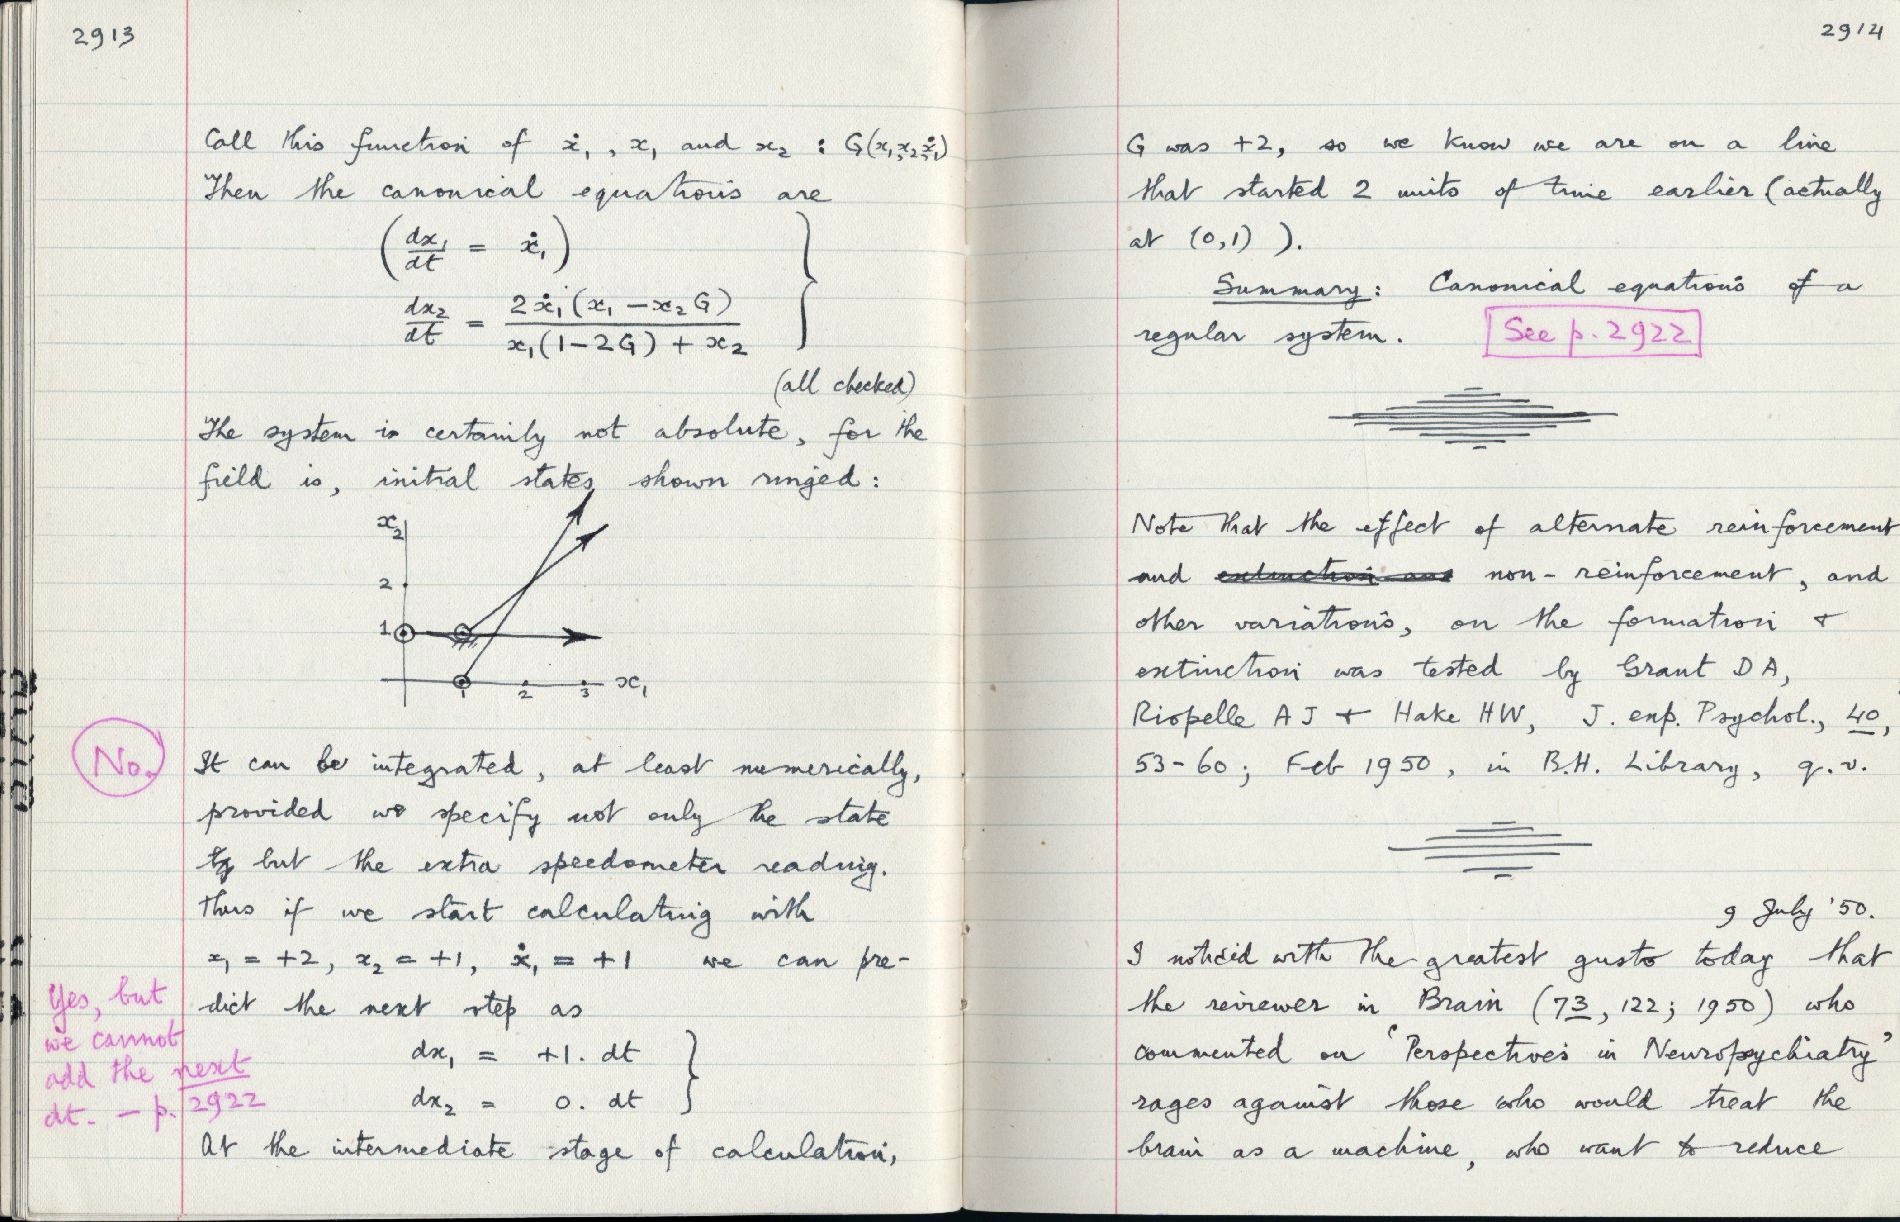 2913
Call this function of ẋ₁, x₁ and x₂ : G(x₁,x₂,ẋ₁)
Then the canonical equations are
(dx₁/dt = ẋ₁)
dx₂/dt = 2ẋ₁(x₁ − x₂G) / x₁(1−2G) + x₂
(all checked)
The system is certainly not absolute, for the
field is, initial states shown ringed:
x₂
2
1
1 2 3 x₁
No.
It can be integrated, at least numerically,
provided we specify not only the state
but the extra speedometer reading.
Thus if we start calculating with
x₁ = +2, x₂ = +1, ẋ₁ = +1 we can pre-
dict the next step as
dx₁ = +1. dt
dx₂ = 0. dt
Yes, but
we cannot
add the next
dt. – p. 2922
At the intermediate stage of calculation,
2914
G was +2, so we know we are on a line
that started 2 units of time earlier (actually
at (0,1) ).
Summary: Canonical equations of a
regular system. See p. 2922
Note that the effect of alternate reinforcement
and extinction and non-reinforcement, and
other variations, on the formation +
extinction was tested by Grant DA,
Riopelle AJ + Hake HW, J. exp. Psychol., 40,
53-60; Feb 1950, in B.H. Library, q.v.
9 July '50.
I noticed with the greatest gusto today that
the reviewer in Brain (73, 122; 1950) who
commented on 'Perspectives in Neuropsychiatry'
rages against those who would treat the
brain as a machine, who want to reduce